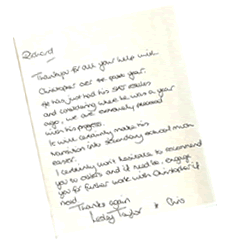 Richard
Thankyou for all your help with
Christopher over the past year.
He has just had his SATs results
and considering where he was a year
ago, we are extremely pleased
with his progress.
It will certainly make his
transition into secondary school much
easier.
I certainly won't hesitate to recommend
you to others and if need be, engage
you for further work with Christopher if
need
Thanks again
Lesley Taylor & Chris